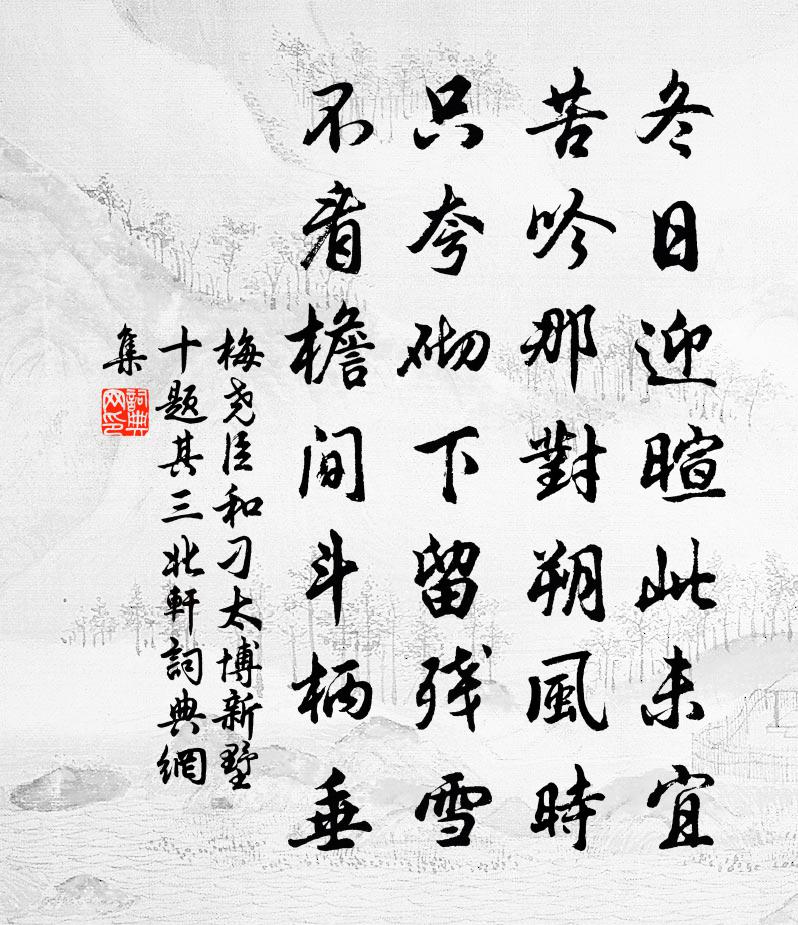 冬日迎暄此未宜
苦吟那對朔風時
只夸砌下留殘雪
不看檐間斗柄垂
梅尧臣和刁太博新墅
十题其三北軒詞典網
集
詞典
网印